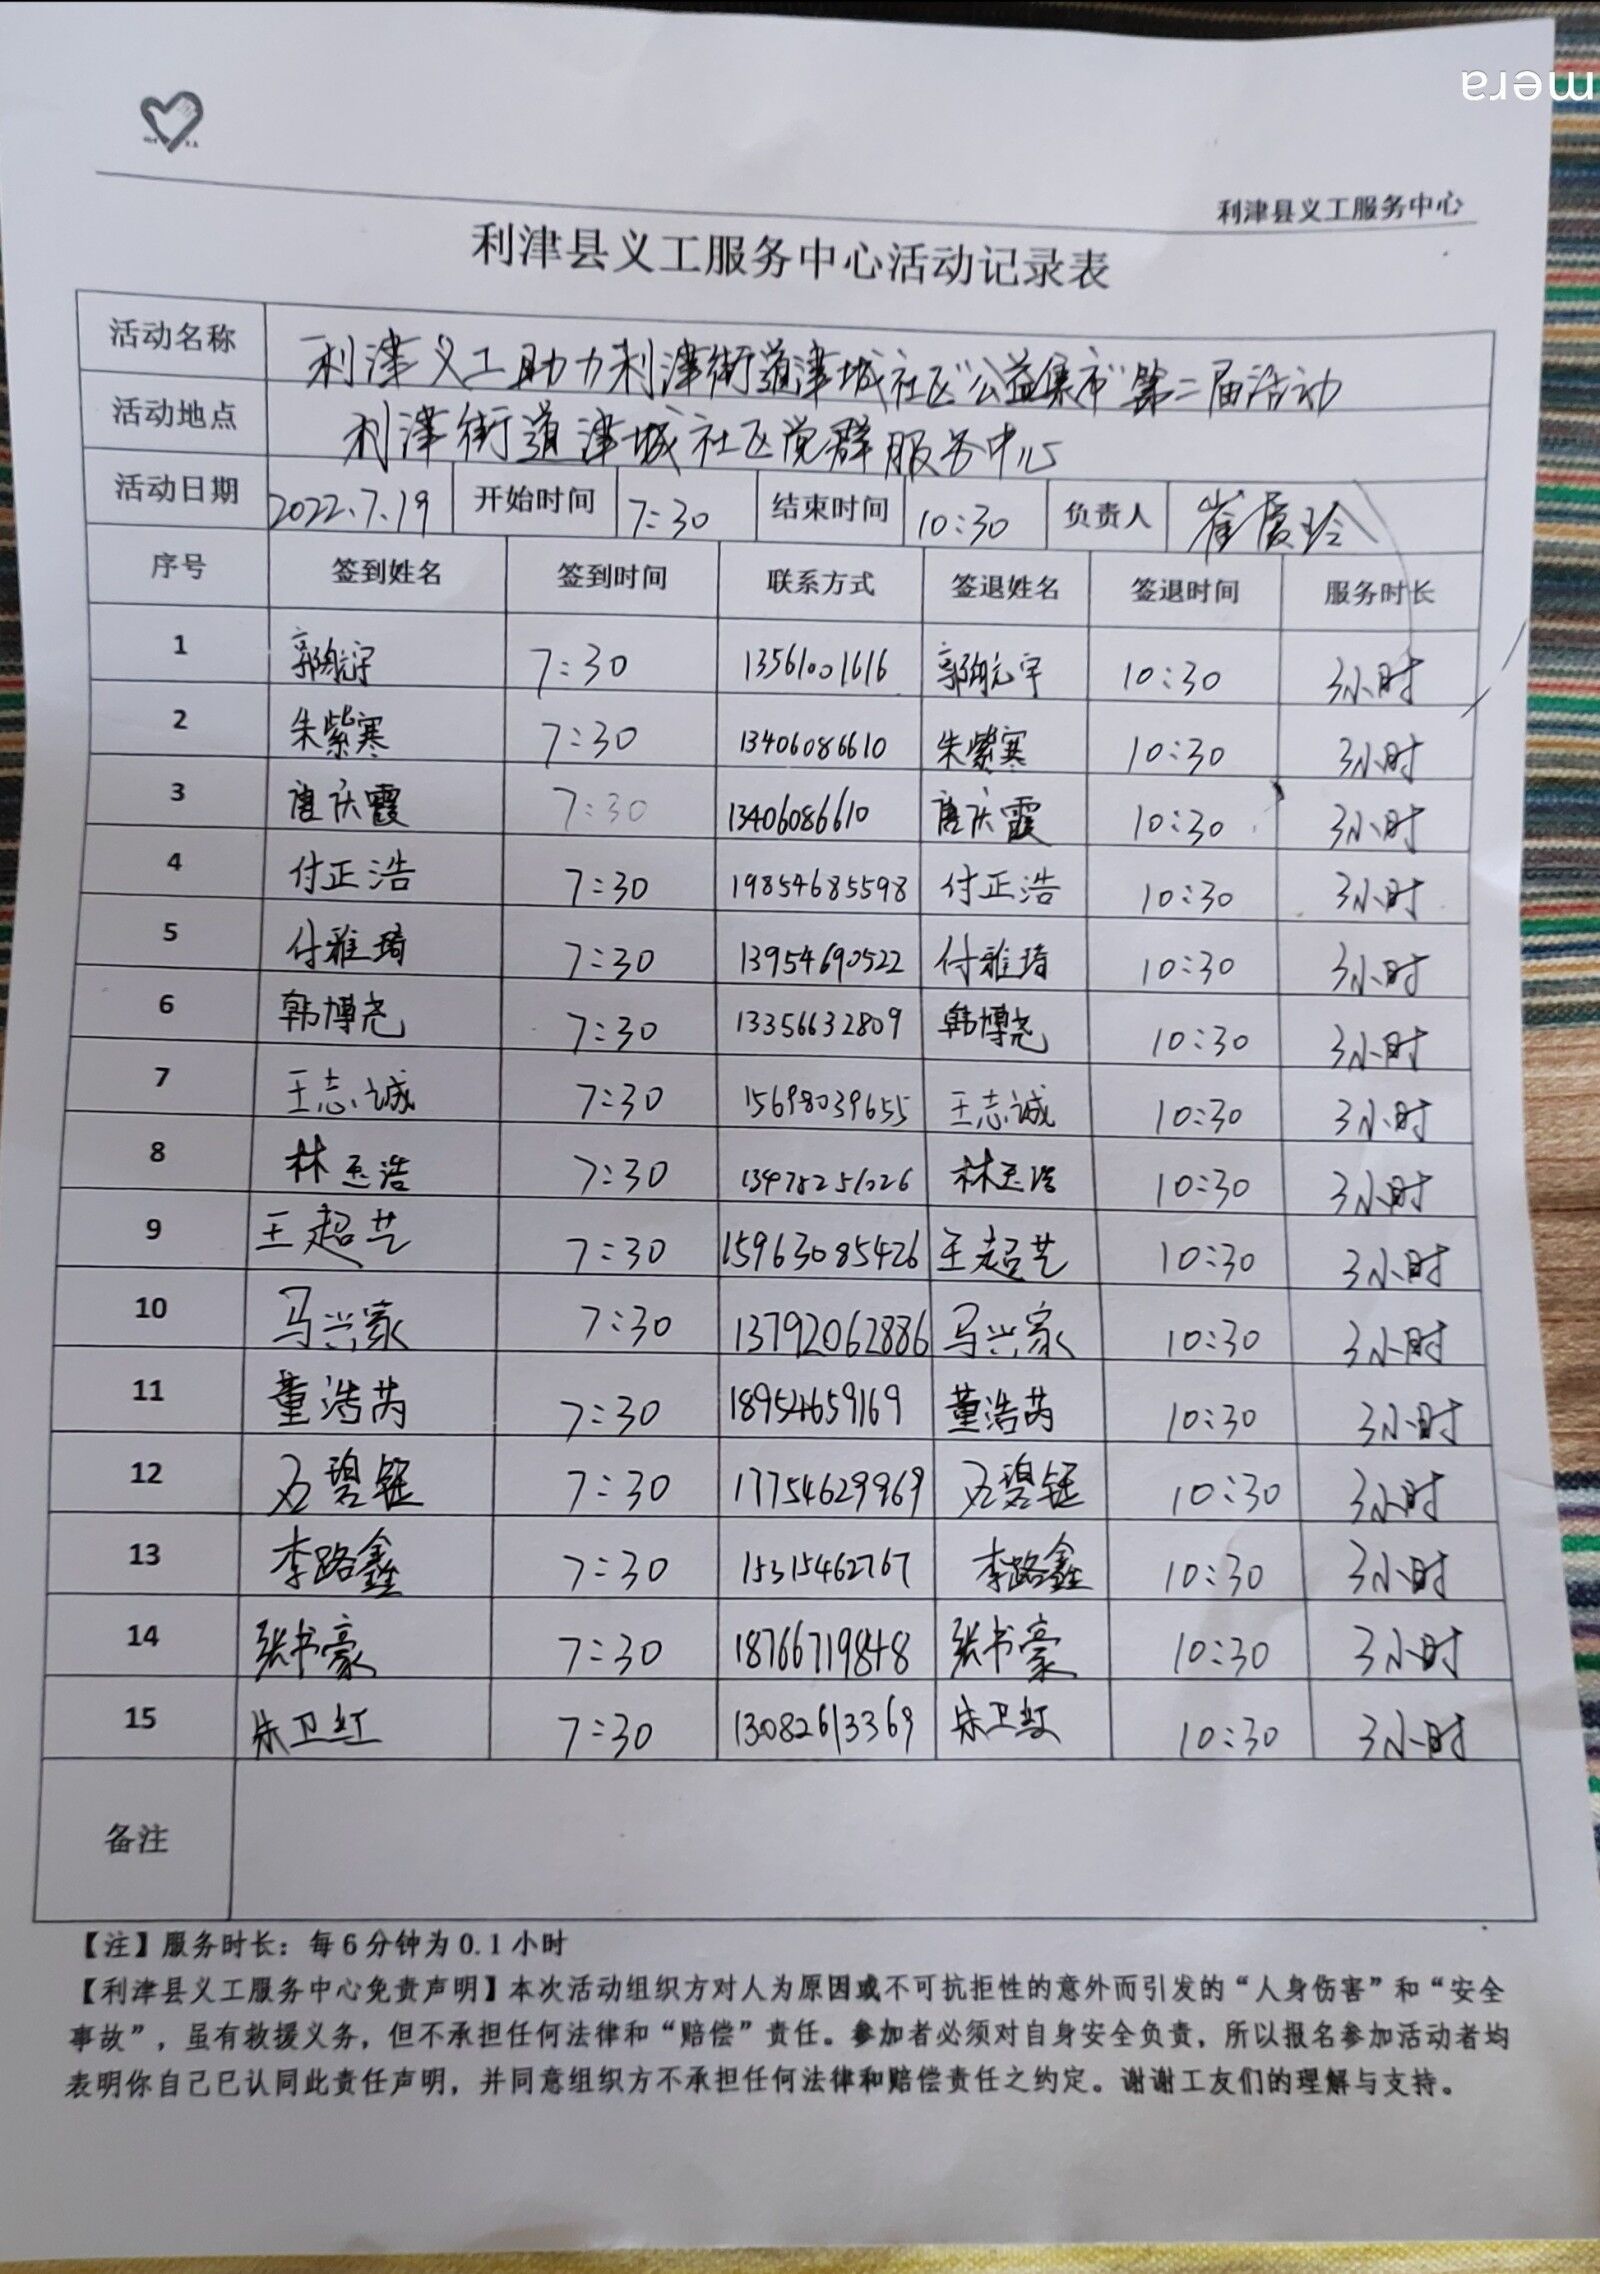 mera
利津县义工服务中心
利津县义工服务中心活动记录表
活动名称 利津义工助力利津街道津城社区"公益集市"第二届活动
活动地点 利津街道津城社区党群服务中心
活动日期 2022.7.19 开始时间 7:30 结束时间 10:30 负责人 崔霞玲
序号 签到姓名 签到时间 联系方式 签退姓名 签退时间 服务时长
1 郭航宇 7:30 13561001616 郭航宇 10:30 3小时
2 朱紫寒 7:30 13406086610 朱紫寒 10:30 3小时
3 唐庆霞 7:30 13406086610 唐庆霞 10:30 3小时
4 付正浩 7:30 19854685598 付正浩 10:30 3小时
5 付雅琦 7:30 13954690522 付雅琦 10:30 3小时
6 韩博尧 7:30 13356632809 韩博尧 10:30 3小时
7 王志诚 7:30 15698039655 王志诚 10:30 3小时
8 林玉浩 7:30 林玉浩 10:30 3小时
9 王超艺 7:30 15963085426 王超艺 10:30 3小时
10 马兴家 7:30 13792062886 马兴家 10:30 3小时
11 董浩芮 7:30 18954659169 董浩芮 10:30 3小时
12 7:30 17754629969 10:30 3小时
13 李路鑫 7:30 15315462767 李路鑫 10:30 3小时
14 张书豪 7:30 18766719848 张书豪 10:30 3小时
15 朱卫红 7:30 13082613369 朱卫红 10:30 3小时
备注
【注】服务时长：每6分钟为0.1小时
【利津县义工服务中心免责声明】本次活动组织方对人为原因或不可抗拒性的意外而引发的“人身伤害”和“安全
事故”，虽有救援义务，但不承担任何法律和“赔偿”责任。参加者必须对自身安全负责，所以报名参加活动者均
表明你自己已认同此责任声明，并同意组织方不承担任何法律和赔偿责任之约定。谢谢工友们的理解与支持。